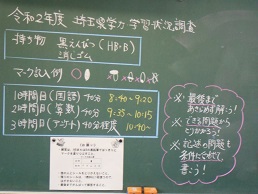 令和2年度 埼玉県学力・学習状況調査
持ち物 黒えんぴつ(HB・B)
消しゴム
マーク記入例
1時間目(国語)40分 8:40〜9:20
2時間目(算数)40分 9:35〜10:15
3時間目(アンケート)40分程度 10:40〜
※最後まで
あきらめず解こう!
※できる問題から
とりかかろう!
※記述の問題も
条件に合わせて
書こう!